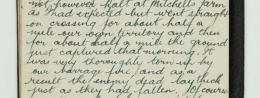 not, however halt at Mitchell's farm
as I had expected but went straight
on crossing for about half a
mile our own territory and then
for about half a mile the ground
just captured that morning. It
was very thoroughly torn up by
our barrage fire and as a
result the enemy dead lay thick
just as they had fallen. Of course